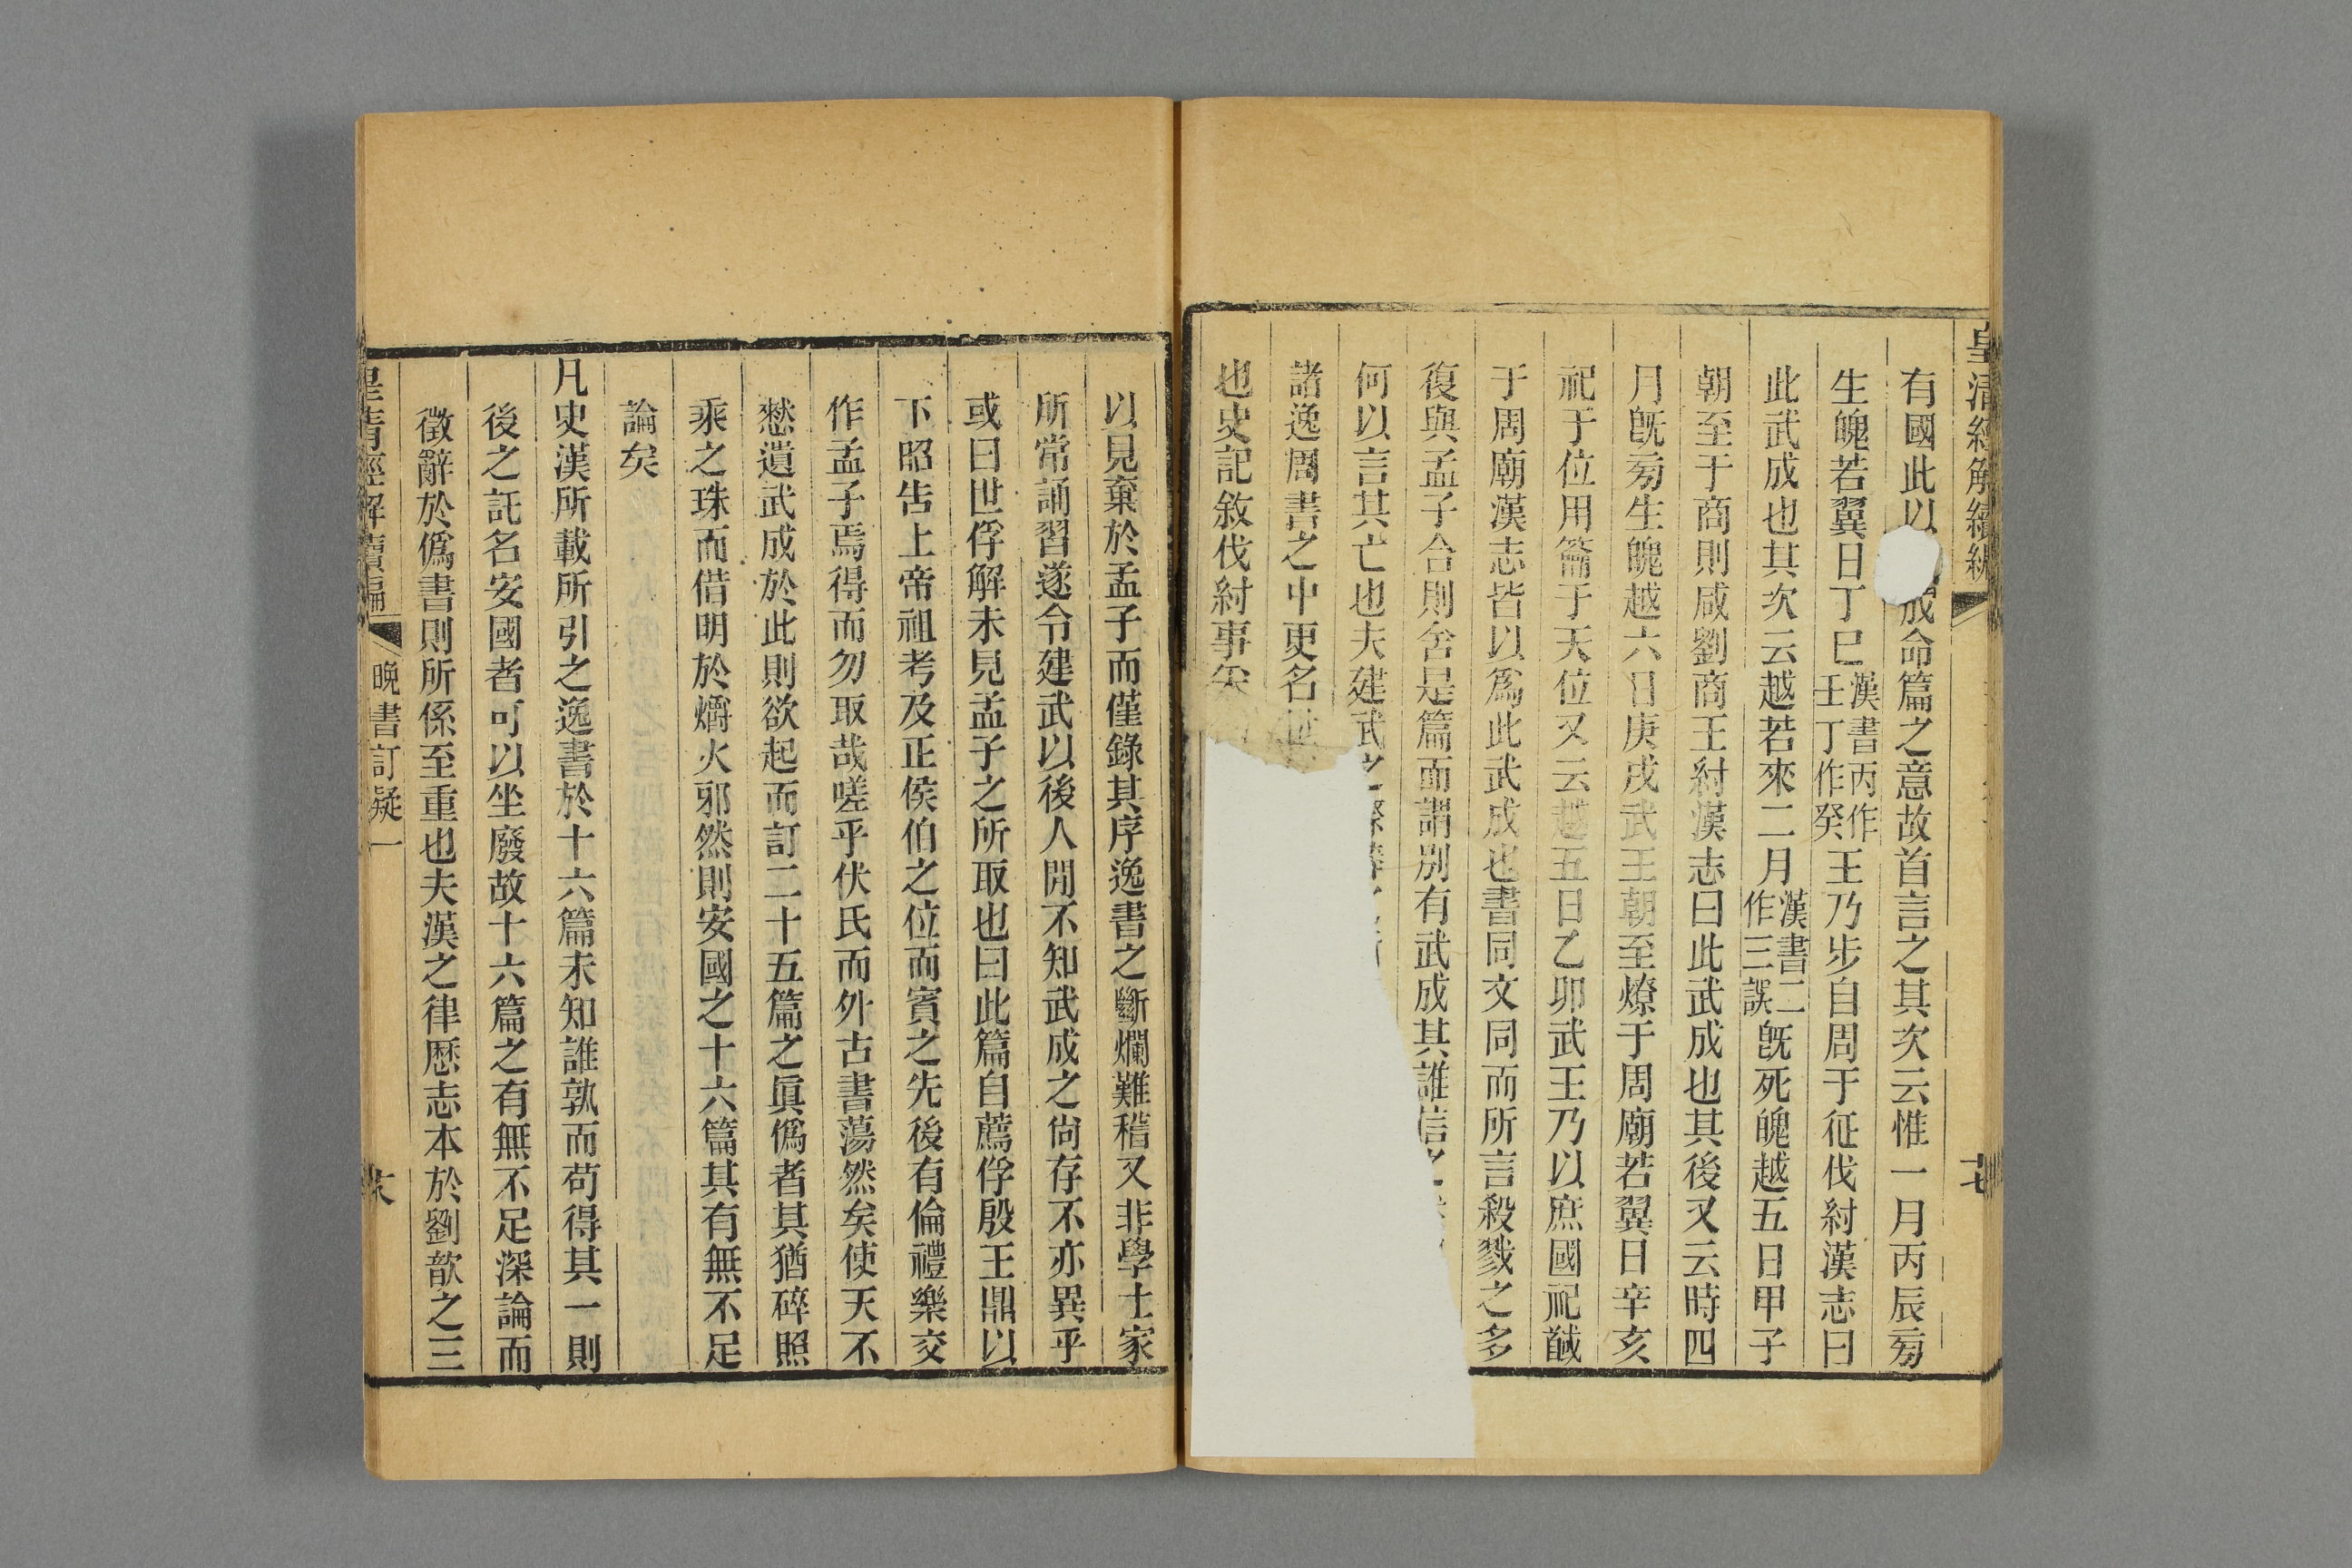 皇清經解續編
七
有國此以成命篇之意故首言之其次云惟一月丙辰旁
生魄若翼日丁巳漢書丙作壬丁作癸王乃步自周于征伐紂漢志曰
此武成也其次云越若來二月漢書二作三誤旣死魄越五日甲子
朝至于商則咸劉商王紂漢志曰此武成也其後又云時四
月旣旁生魄越六日庚戌武王朝至燎于周廟若翼日辛亥
祀于位用籥于天位又云越五日乙卯武王乃以庶國祀馘
于周廟漢志皆以爲此武成也書同文同而所言殺戮之多
復與孟子合則舍是篇而謂別有武成其誰信之
何以言其亡也夫建武之際
諸逸周書之中更名世
也史記敘伐紂事矣
以見棄於孟子而僅錄其序逸書之斷爛難稽又非學士家
所常誦習遂令建武以後人閒不知武成之尙存不亦異乎
或曰世俘解未見孟子之所取也曰此篇自薦俘殷王鼎以
下昭告上帝祖考及正侯伯之位而賓之先後有倫禮樂交
作孟子焉得而勿取哉嗟乎伏氏而外古書蕩然矣使天不
憖遺武成於此則欲起而訂二十五篇之眞僞者其猶碎照
乘之珠而借明於爝火邪然則安國之十六篇其有無不足
論矣
凡史漢所載所引之逸書於十六篇未知誰孰而苟得其一則
後之託名安國者可以坐廢故十六篇之有無不足深論而
徵辭於僞書則所係至重也夫漢之律厯志本於劉歆之三
皇清經解續編
晚書訂疑一